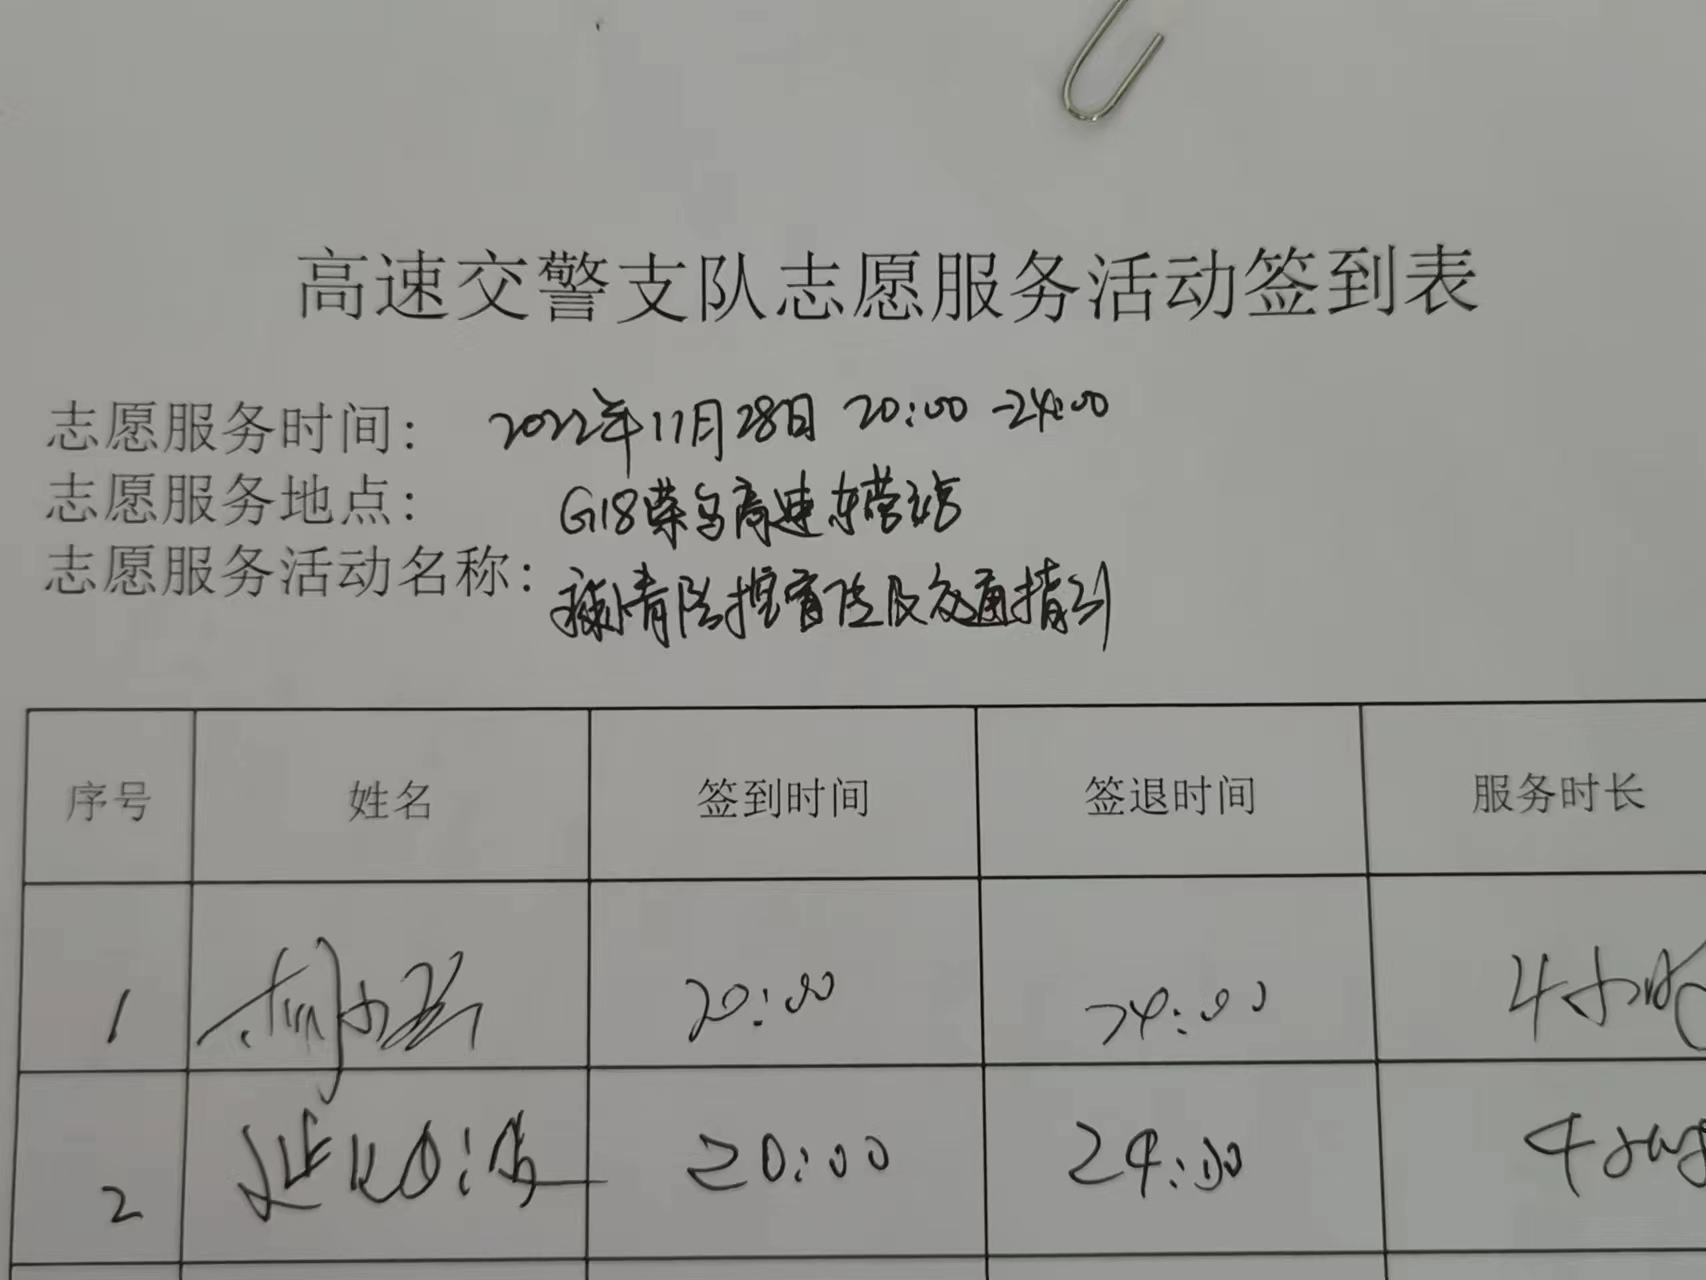 高速交警支队志愿服务活动签到表
志愿服务时间: 2022年11月28日 20:00-24:00
志愿服务地点: G18荣乌高速东营站
志愿服务活动名称: 疫情防控宣传及交通指引
序号 姓名 签到时间 签退时间 服务时长
1 20:00 24:00 4小时
2 20:00 24:00 4小时